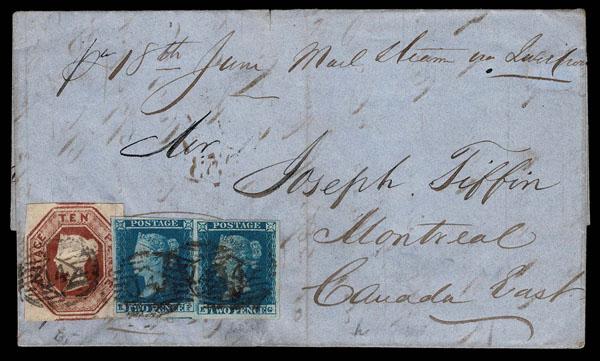 pr 18th June Mail Steam via Liverpool
Mr.
Joseph Tiffin
Montreal
Canada East
TEN
POSTAGE POSTAGE
TWO PENCE TWO PENCE